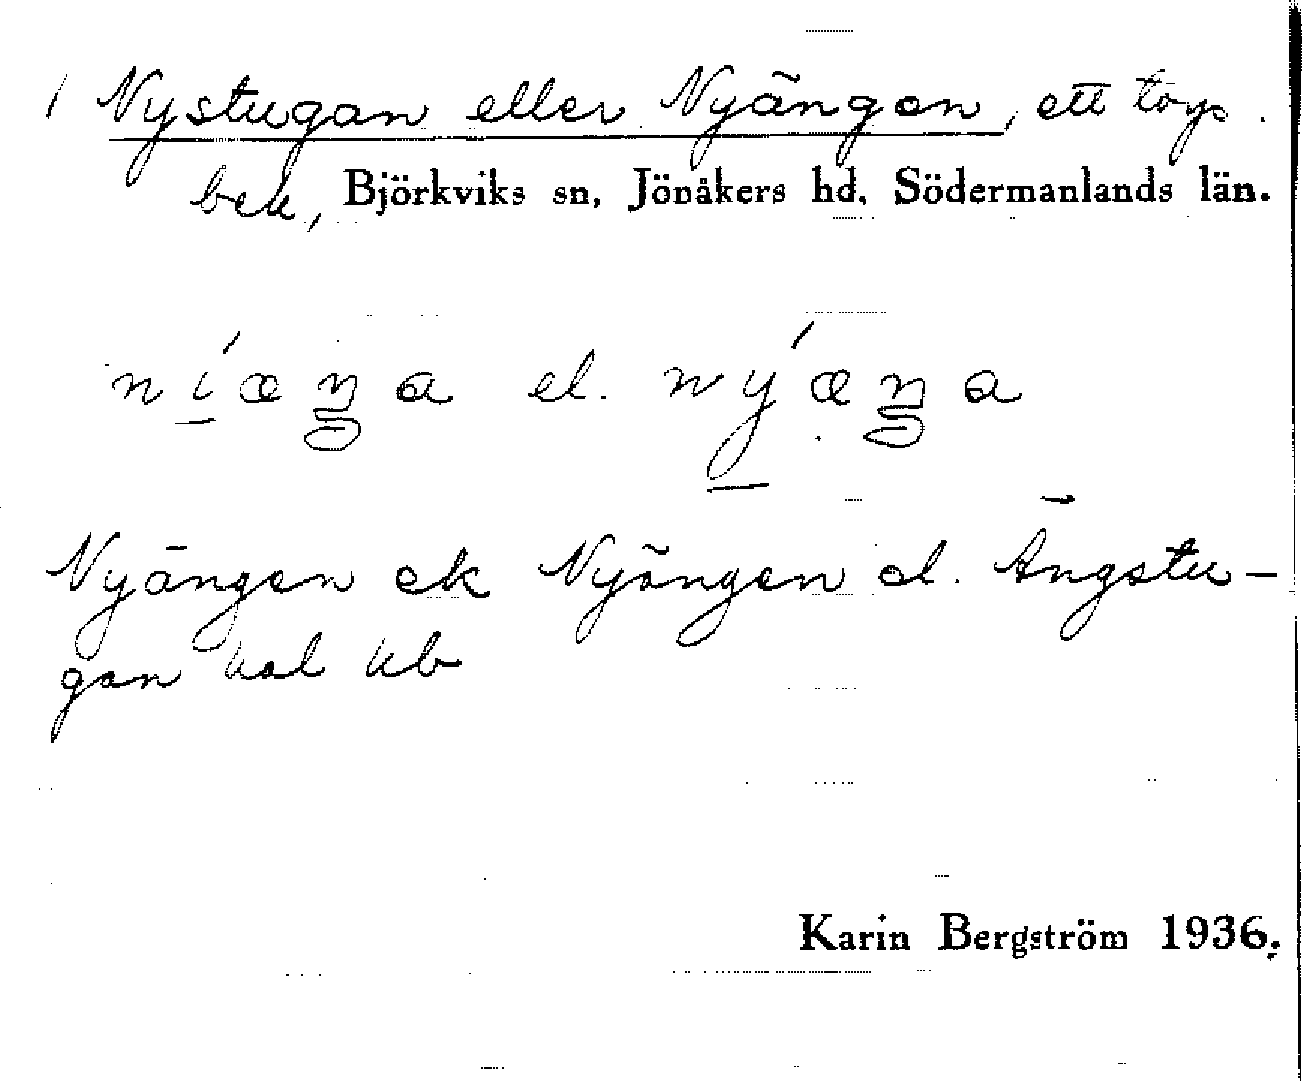 / Nystugan eller Nyängen, ett torp.
beb, Björkviks sn, Jönåkers hd, Södermanlands län.
níæŋa el. nýæŋa
Nyängen ek Nyängen el. Ängstu-
gan hal hb
Karin Bergström 1936.